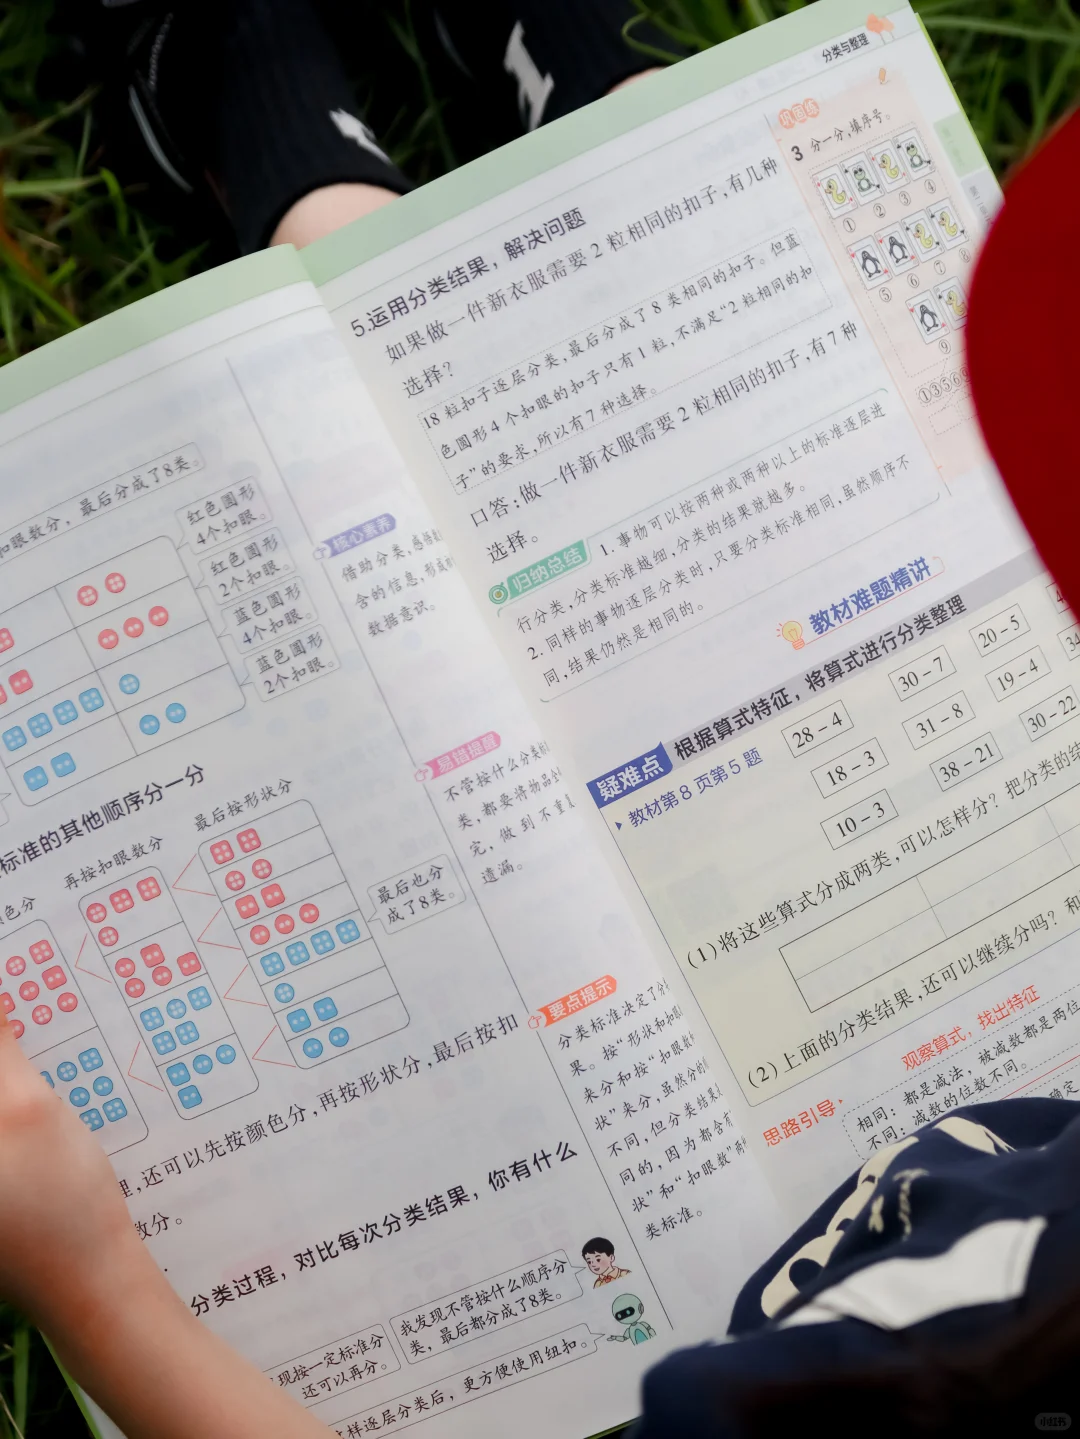 扣眼数分，最后分成了8类。
红色圆形
4个扣眼。
红色圆形
2个扣眼。
蓝色圆形
4个扣眼。
蓝色圆形
2个扣眼。
标准的其他顺序分一分
色分
再按扣眼数分
最后按形状分
最后也分
成了8类。
理,还可以先按颜色分,再按形状分,最后按扣
数分。
分类过程，对比每次分类结果，你有什么
我发现不管按什么顺序分
类，最后都分成了8类。
现按一定标准分
还可以再分。
样逐层分类后，更方便使用纽扣。
核心素养
借助分类,感悟
含的信息,形成
数据意识。
易错提醒
不管按什么分类
类,都要将物品
完,做到不重
遗漏。
要点提示
分类标准决定了分
果。按“形状和扣眼
来分和按“扣眼数
状”来分,虽然分的
不同,但分类结果
同的,因为都含有
状”和“扣眼数”两
类标准。
分类与整理
5.运用分类结果，解决问题
如果做一件新衣服需要2粒相同的扣子,有几种
选择?
18粒扣子逐层分类,最后分成了8类相同的扣子。但蓝
色圆形4个扣眼的扣子只有1粒,不满足“2粒相同的扣
子”的要求,所以有7种选择。
口答:做一件新衣服需要2粒相同的扣子,有7种
选择。
归纳总结
1.事物可以按两种或两种以上的标准逐层进
行分类,分类标准越细,分类的结果就越多。
2.同样的事物逐层分类时,只要分类标准相同,虽然顺序不
同,结果仍然是相同的。
教材难题精讲
疑难点 根据算式特征，将算式进行分类整理
教材第8页第5题
28－4 30－7 20－5
18－3 31－8 19－4 34
10－3 38－21 30－22
(1)将这些算式分成两类,可以怎样分?把分类的结
(2)上面的分类结果,还可以继续分吗?和
观察算式，找出特征
思路引导
相同：都是减法，被减数都是两位
不同：减数的位数不同。
确定
巩固练
3 分一分,填序号。
① ② ③ ④
⑤ ⑥ ⑦ ⑧
⑨
①③⑤⑥
小红书